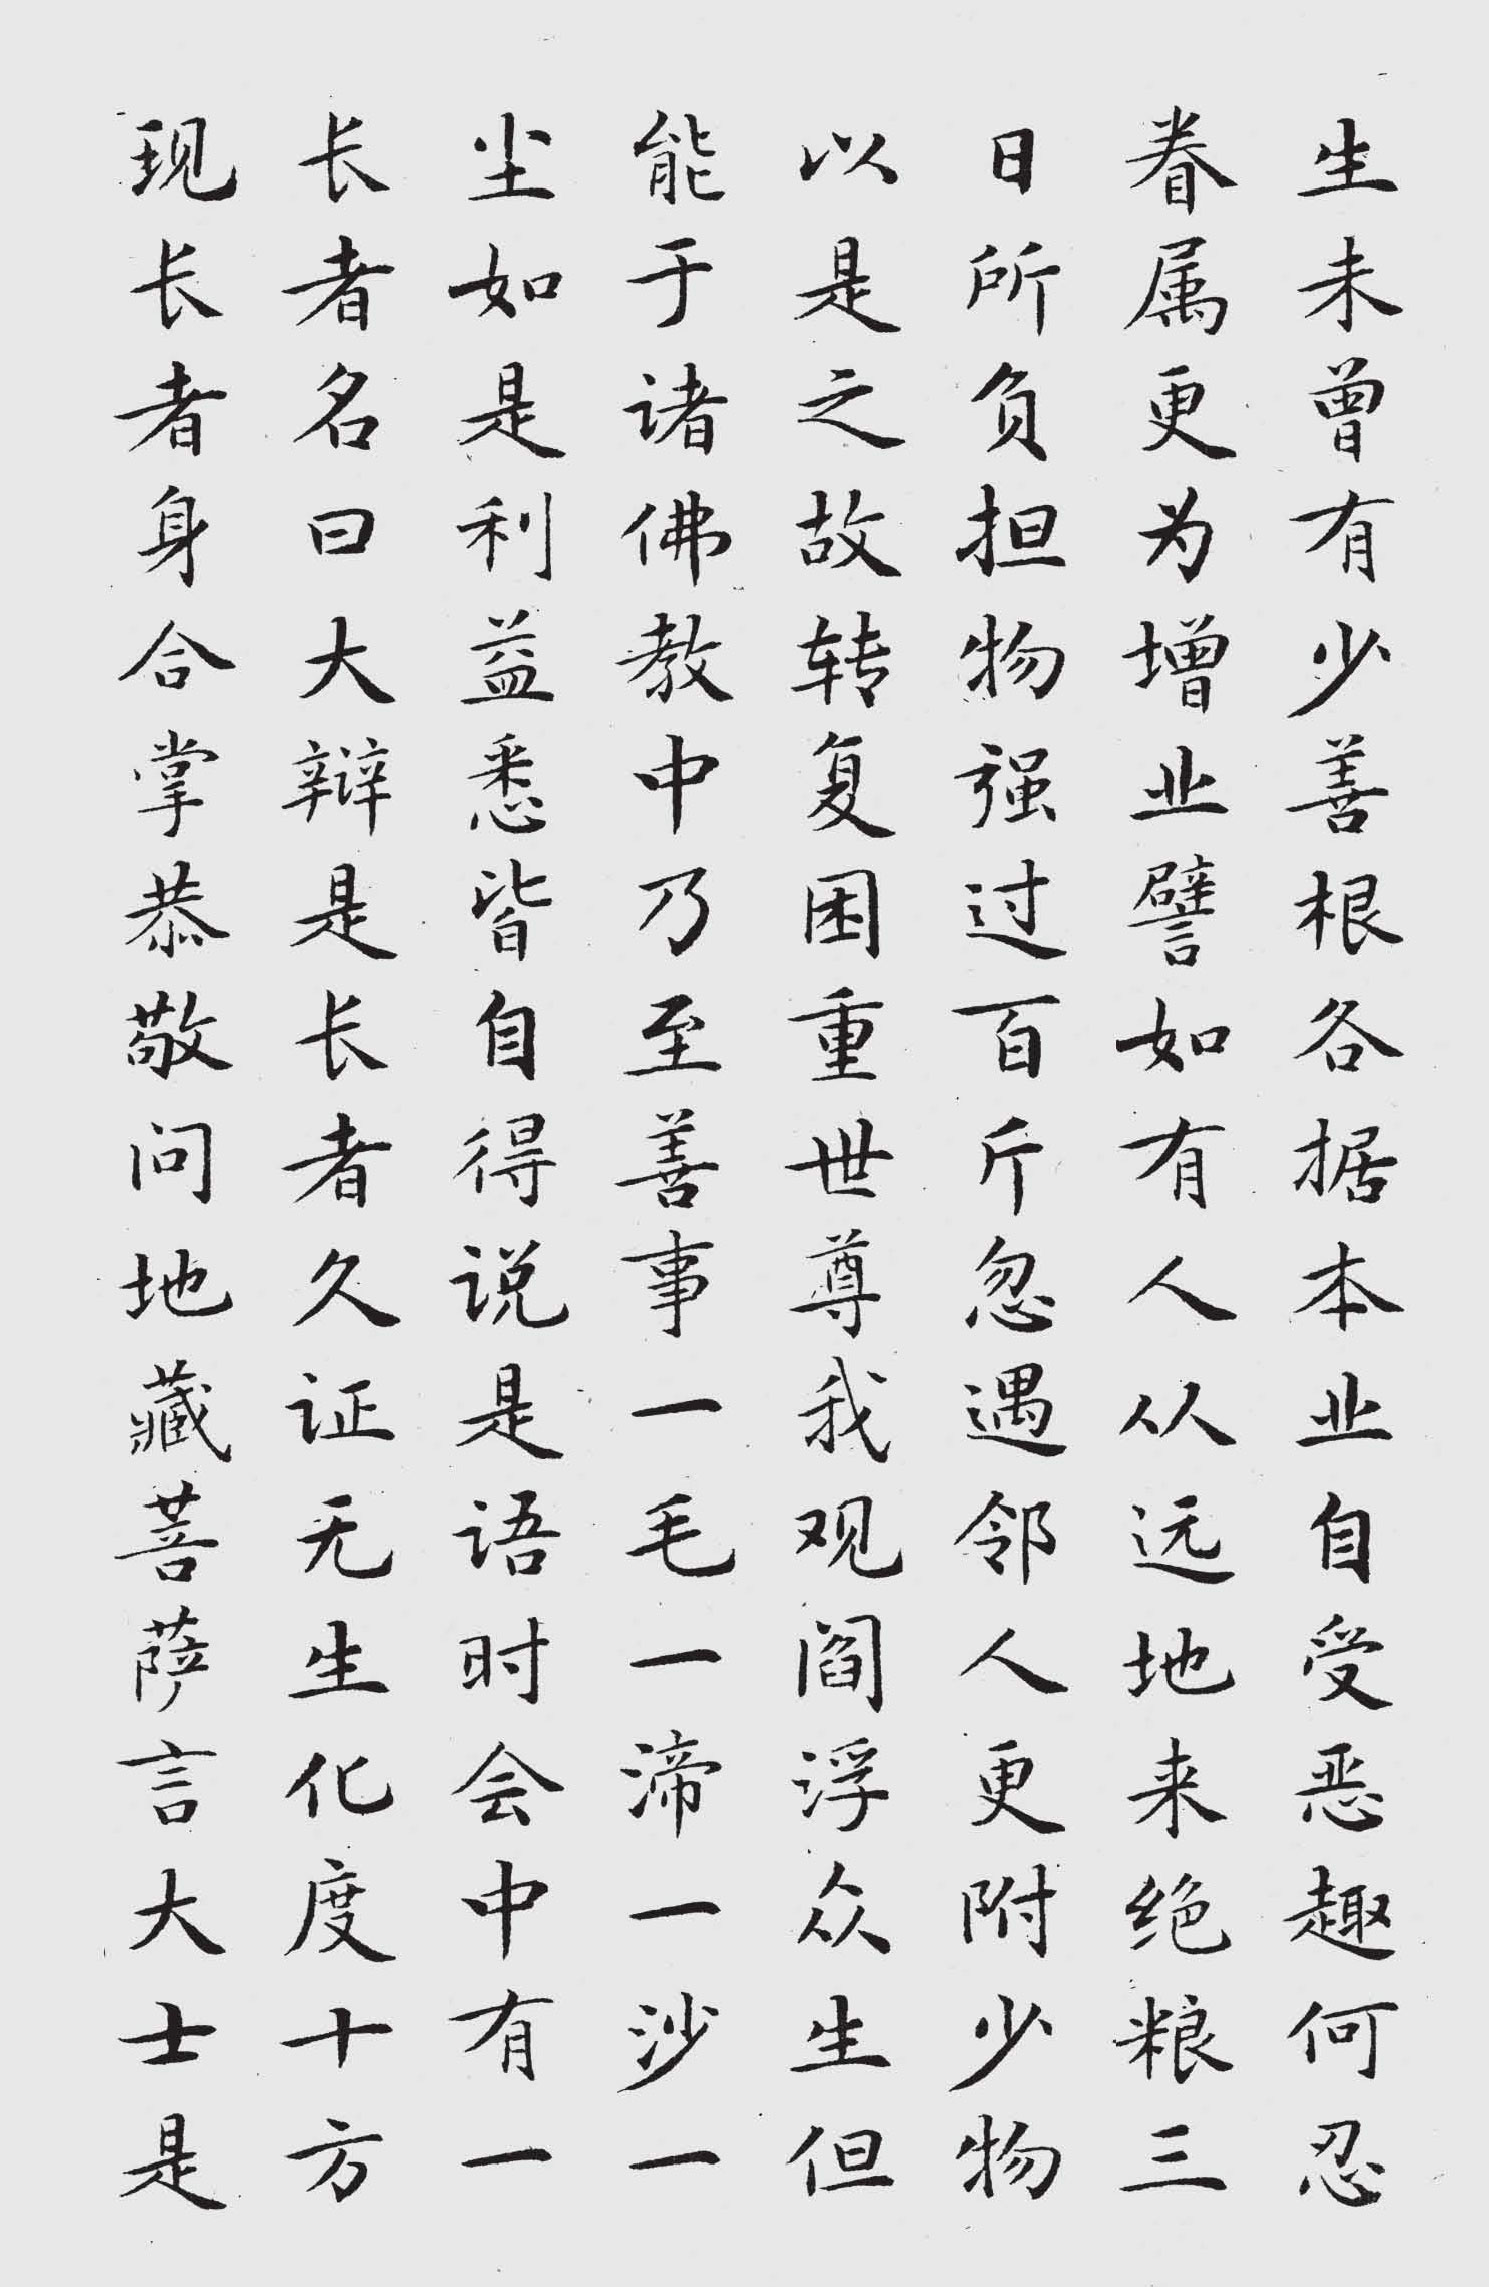 生未曾有少善根各据本业自受恶趣何忍
眷属更为增业譬如有人从远地来绝粮三
日所负担物强过百斤忽遇邻人更附少物
以是之故转复困重世尊我观阎浮众生但
能于诸佛教中乃至善事一毛一渧一沙一
尘如是利益悉皆自得说是语时会中有一
长者名曰大辩是长者久证无生化度十方
现长者身合掌恭敬问地藏菩萨言大士是